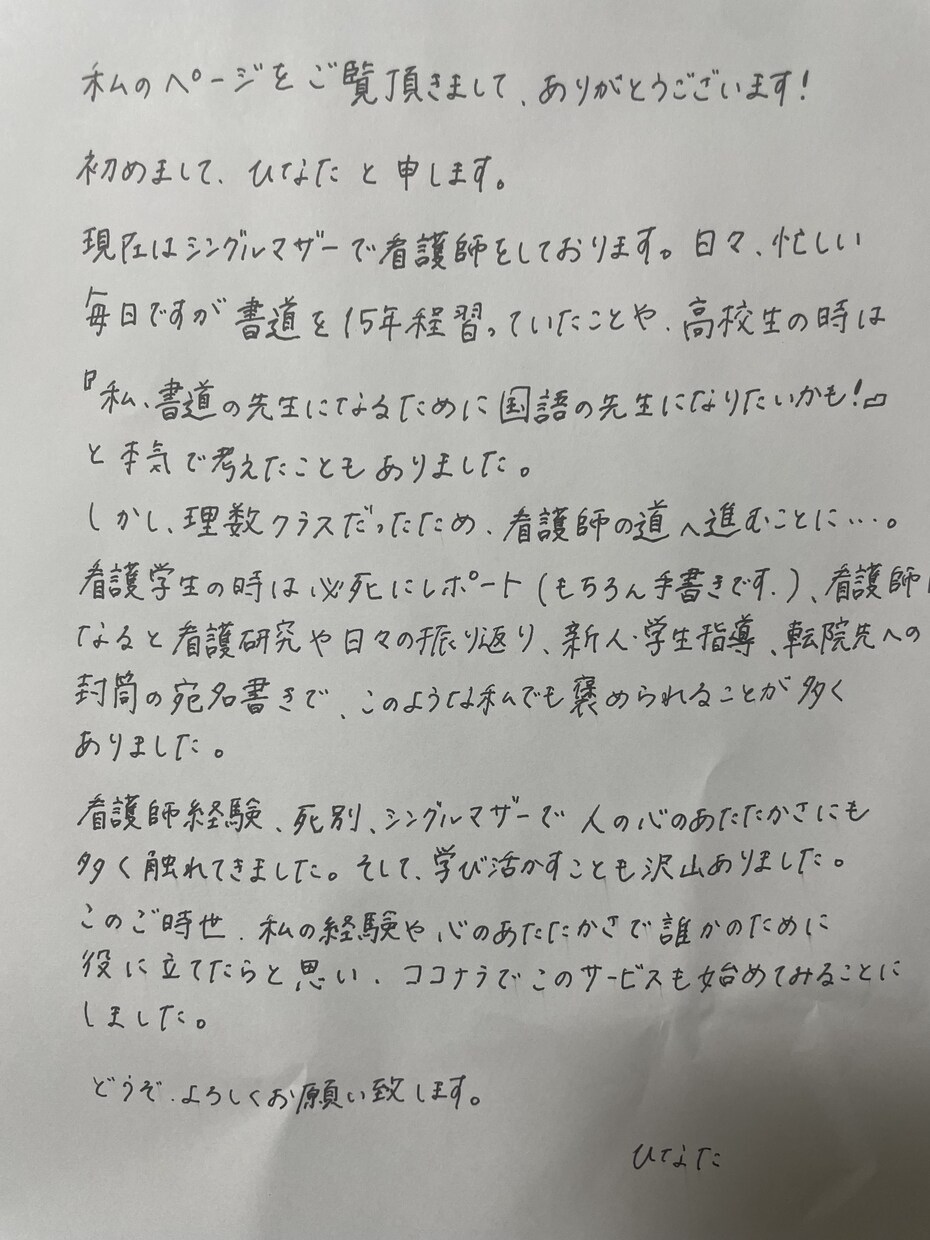 私のページをご覧頂きまして、ありがとうございます!
初めまして、ひなたと申します。
現在はシングルマザーで看護師をしております。日々、忙しい
毎日ですが書道を15年程習っていたことや、高校生の時は
『私、書道の先生になるために国語の先生になりたいかも!』
と本気で考えたこともありました。
しかし、理数クラスだったため、看護師の道へ進むことに…。
看護学生の時は必死にレポート(もちろん手書きです。)、看護師に
なると看護研究や日々の振り返り、新人・学生指導、転院先への
封筒の宛名書きで、このような私でも褒められることが多く
ありました。
看護師経験、死別、シングルマザーで人の心のあたたかさにも
多く触れてきました。そして、学び活かすことも沢山ありました。
このご時世、私の経験や心のあたたかさで誰かのために
役に立てたらと思い、ココナラでこのサービスも始めてみることに
しました。
どうぞ、よろしくお願い致します。
ひなた